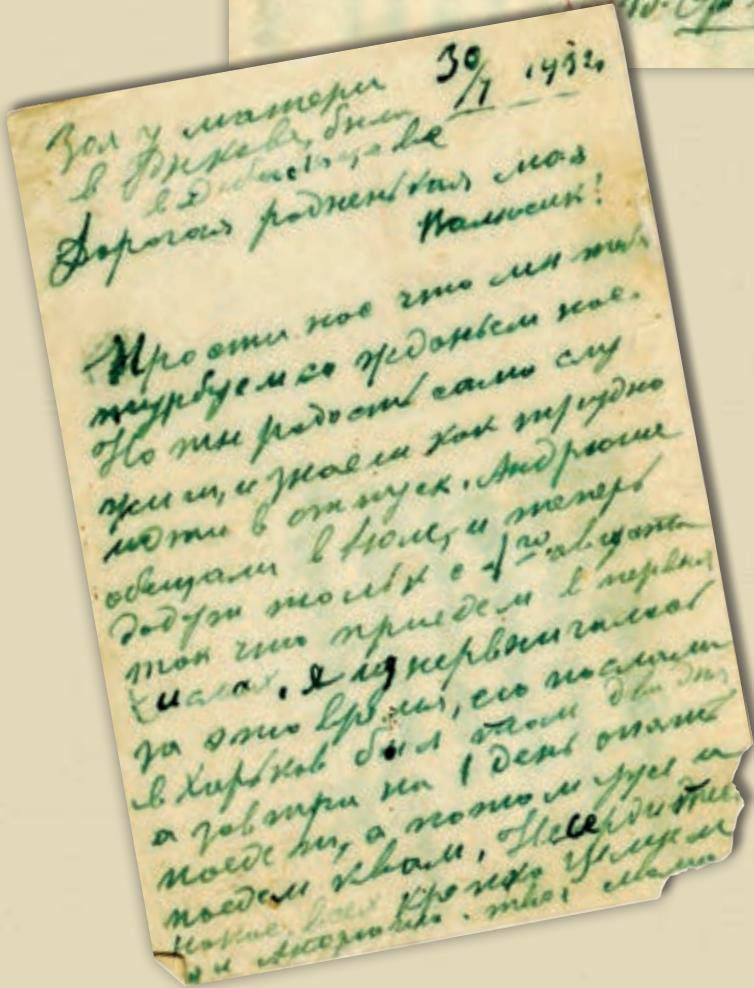 Зоя у матери 30/7 1932
в                была
в
Дорогая родненькая моя
Валюсик!
Прости нас что мы тебя
турбуем со жданьем нас.
Но ты радость сама слу
жиш, и знаеш как трудно
идти в отпуск. Андрюше
обещали в Июле, и теперь
только с 1го августа
так что приедем в первых
числах. Я изнервничалась
за это время, его послали
в Харьков был там два дня
а завтра на 1 день опять
поедет, а потом уже и
поедем к вам. Не сердитесь
на нас. всех крепко целуем
я и Андрюша. твоя мама